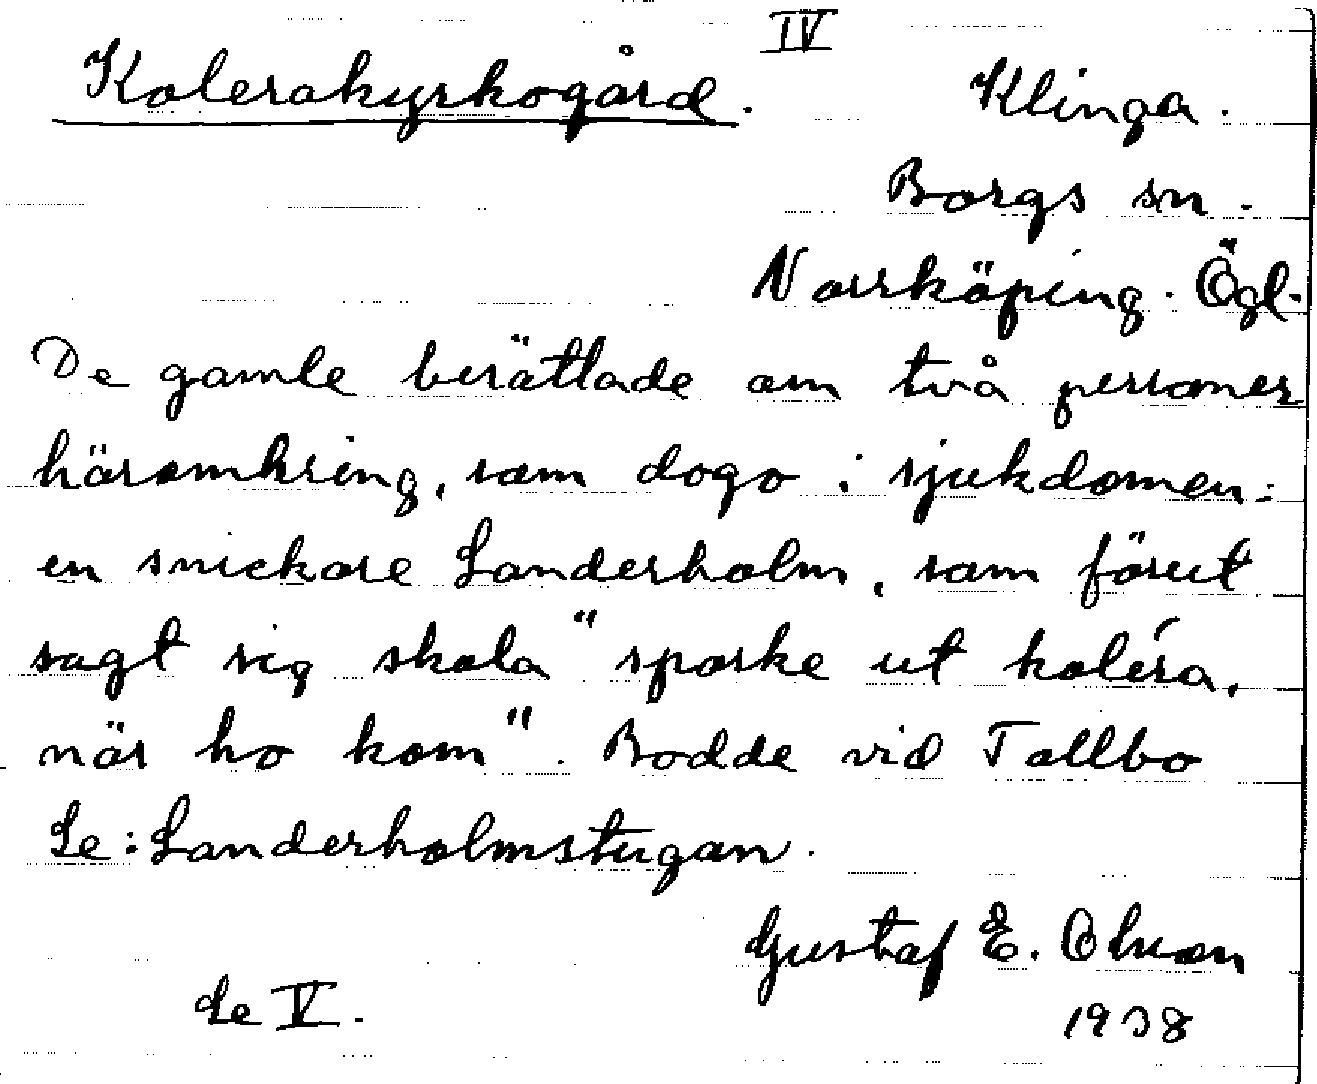 IV
Kolerakyrkogård. Klinga.
Borgs sn.
Norrköping. Ögl.
De gamle berättade om två personer
häromkring, som dogo i sjukdomen:
en snickare Landerholm, som förut
sagt sig skola "sparke ut koléra,
när ho kom". Bodde vid Tallbo
Se: Landerholmstugan.
Gustaf E. Olsson
Se V. 1938